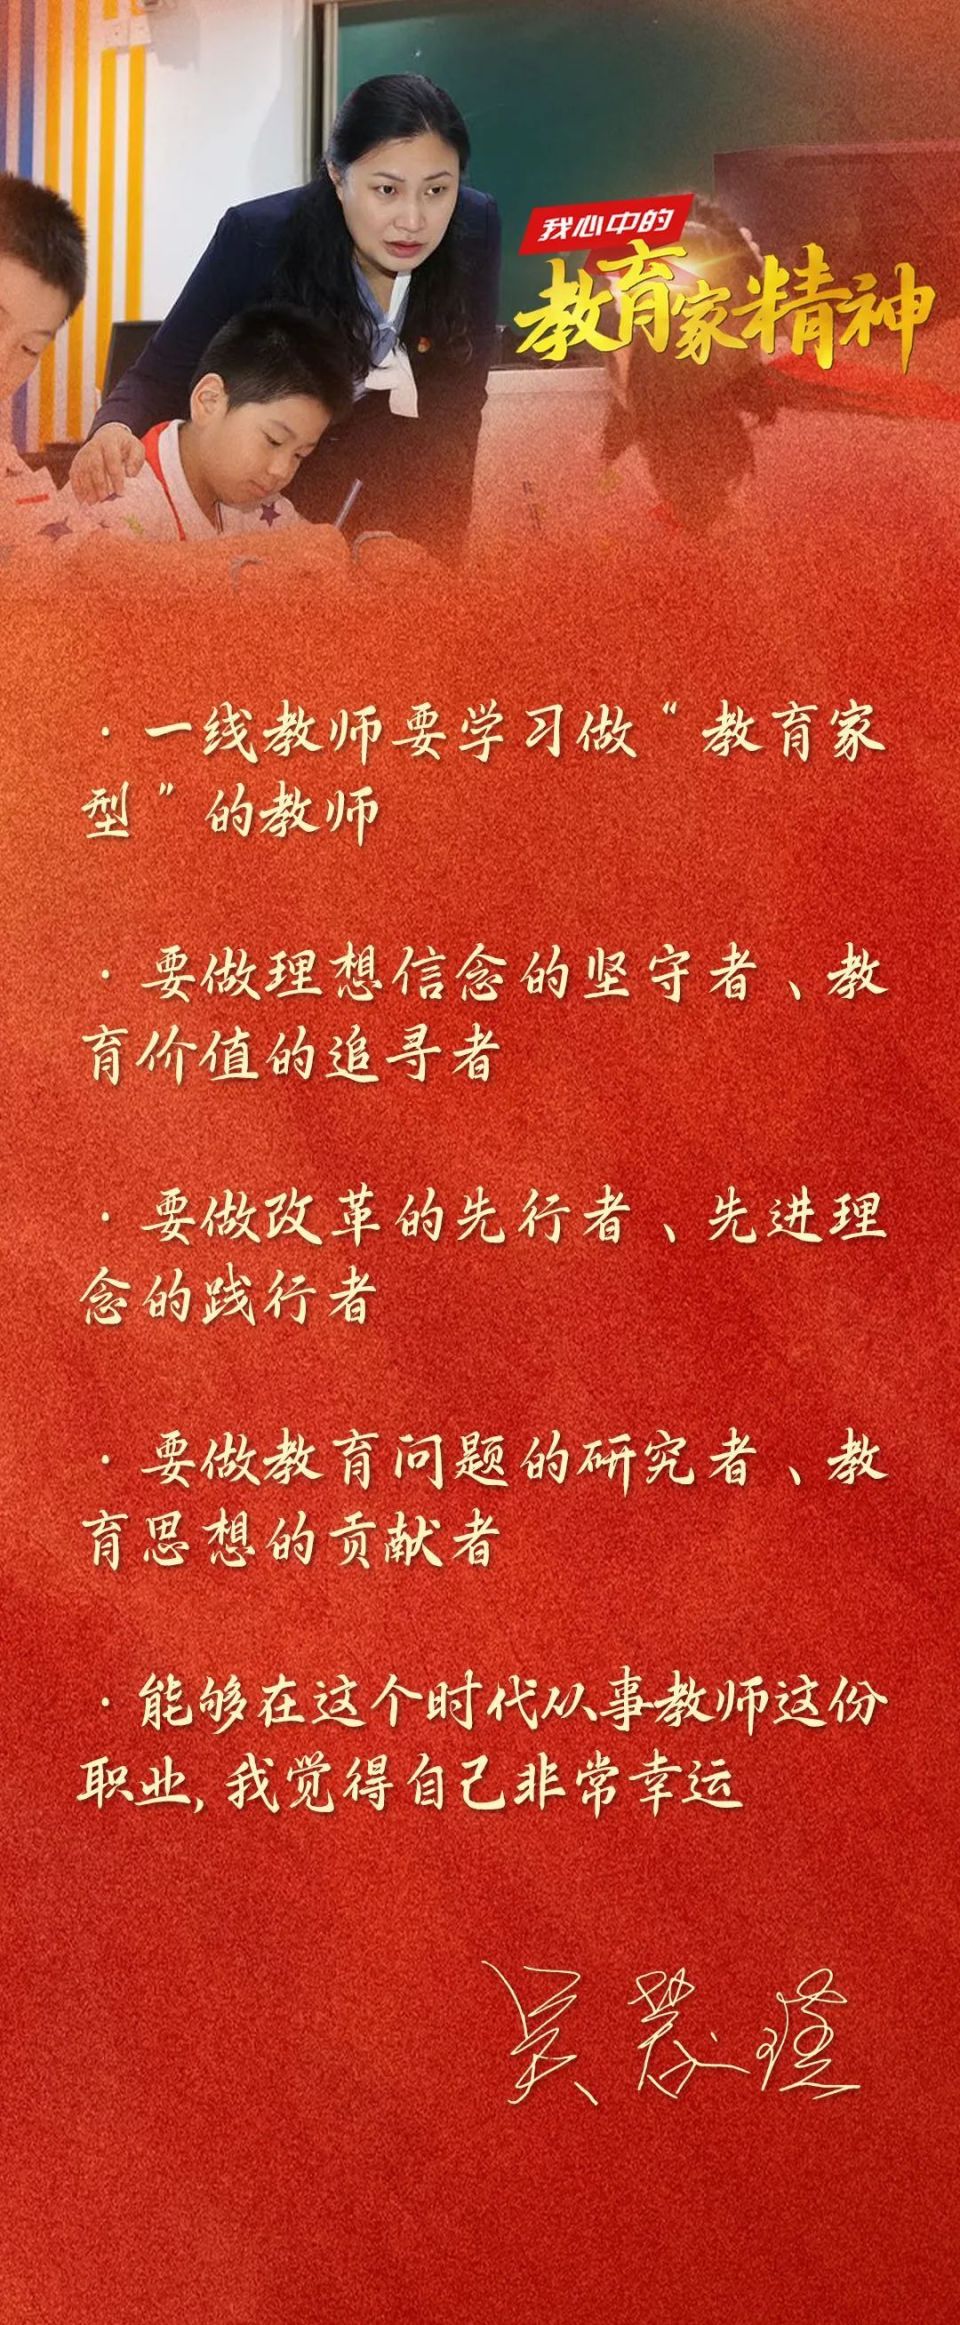 我心中的
教育家精神
·一线教师要学习做“教育家
型”的教师
·要做理想信念的坚守者、教
育价值的追寻者
·要做改革的先行者、先进理
念的践行者
·要做教育问题的研究者、教
育思想的贡献者
·能够在这个时代从事教师这份
职业,我觉得自己非常幸运